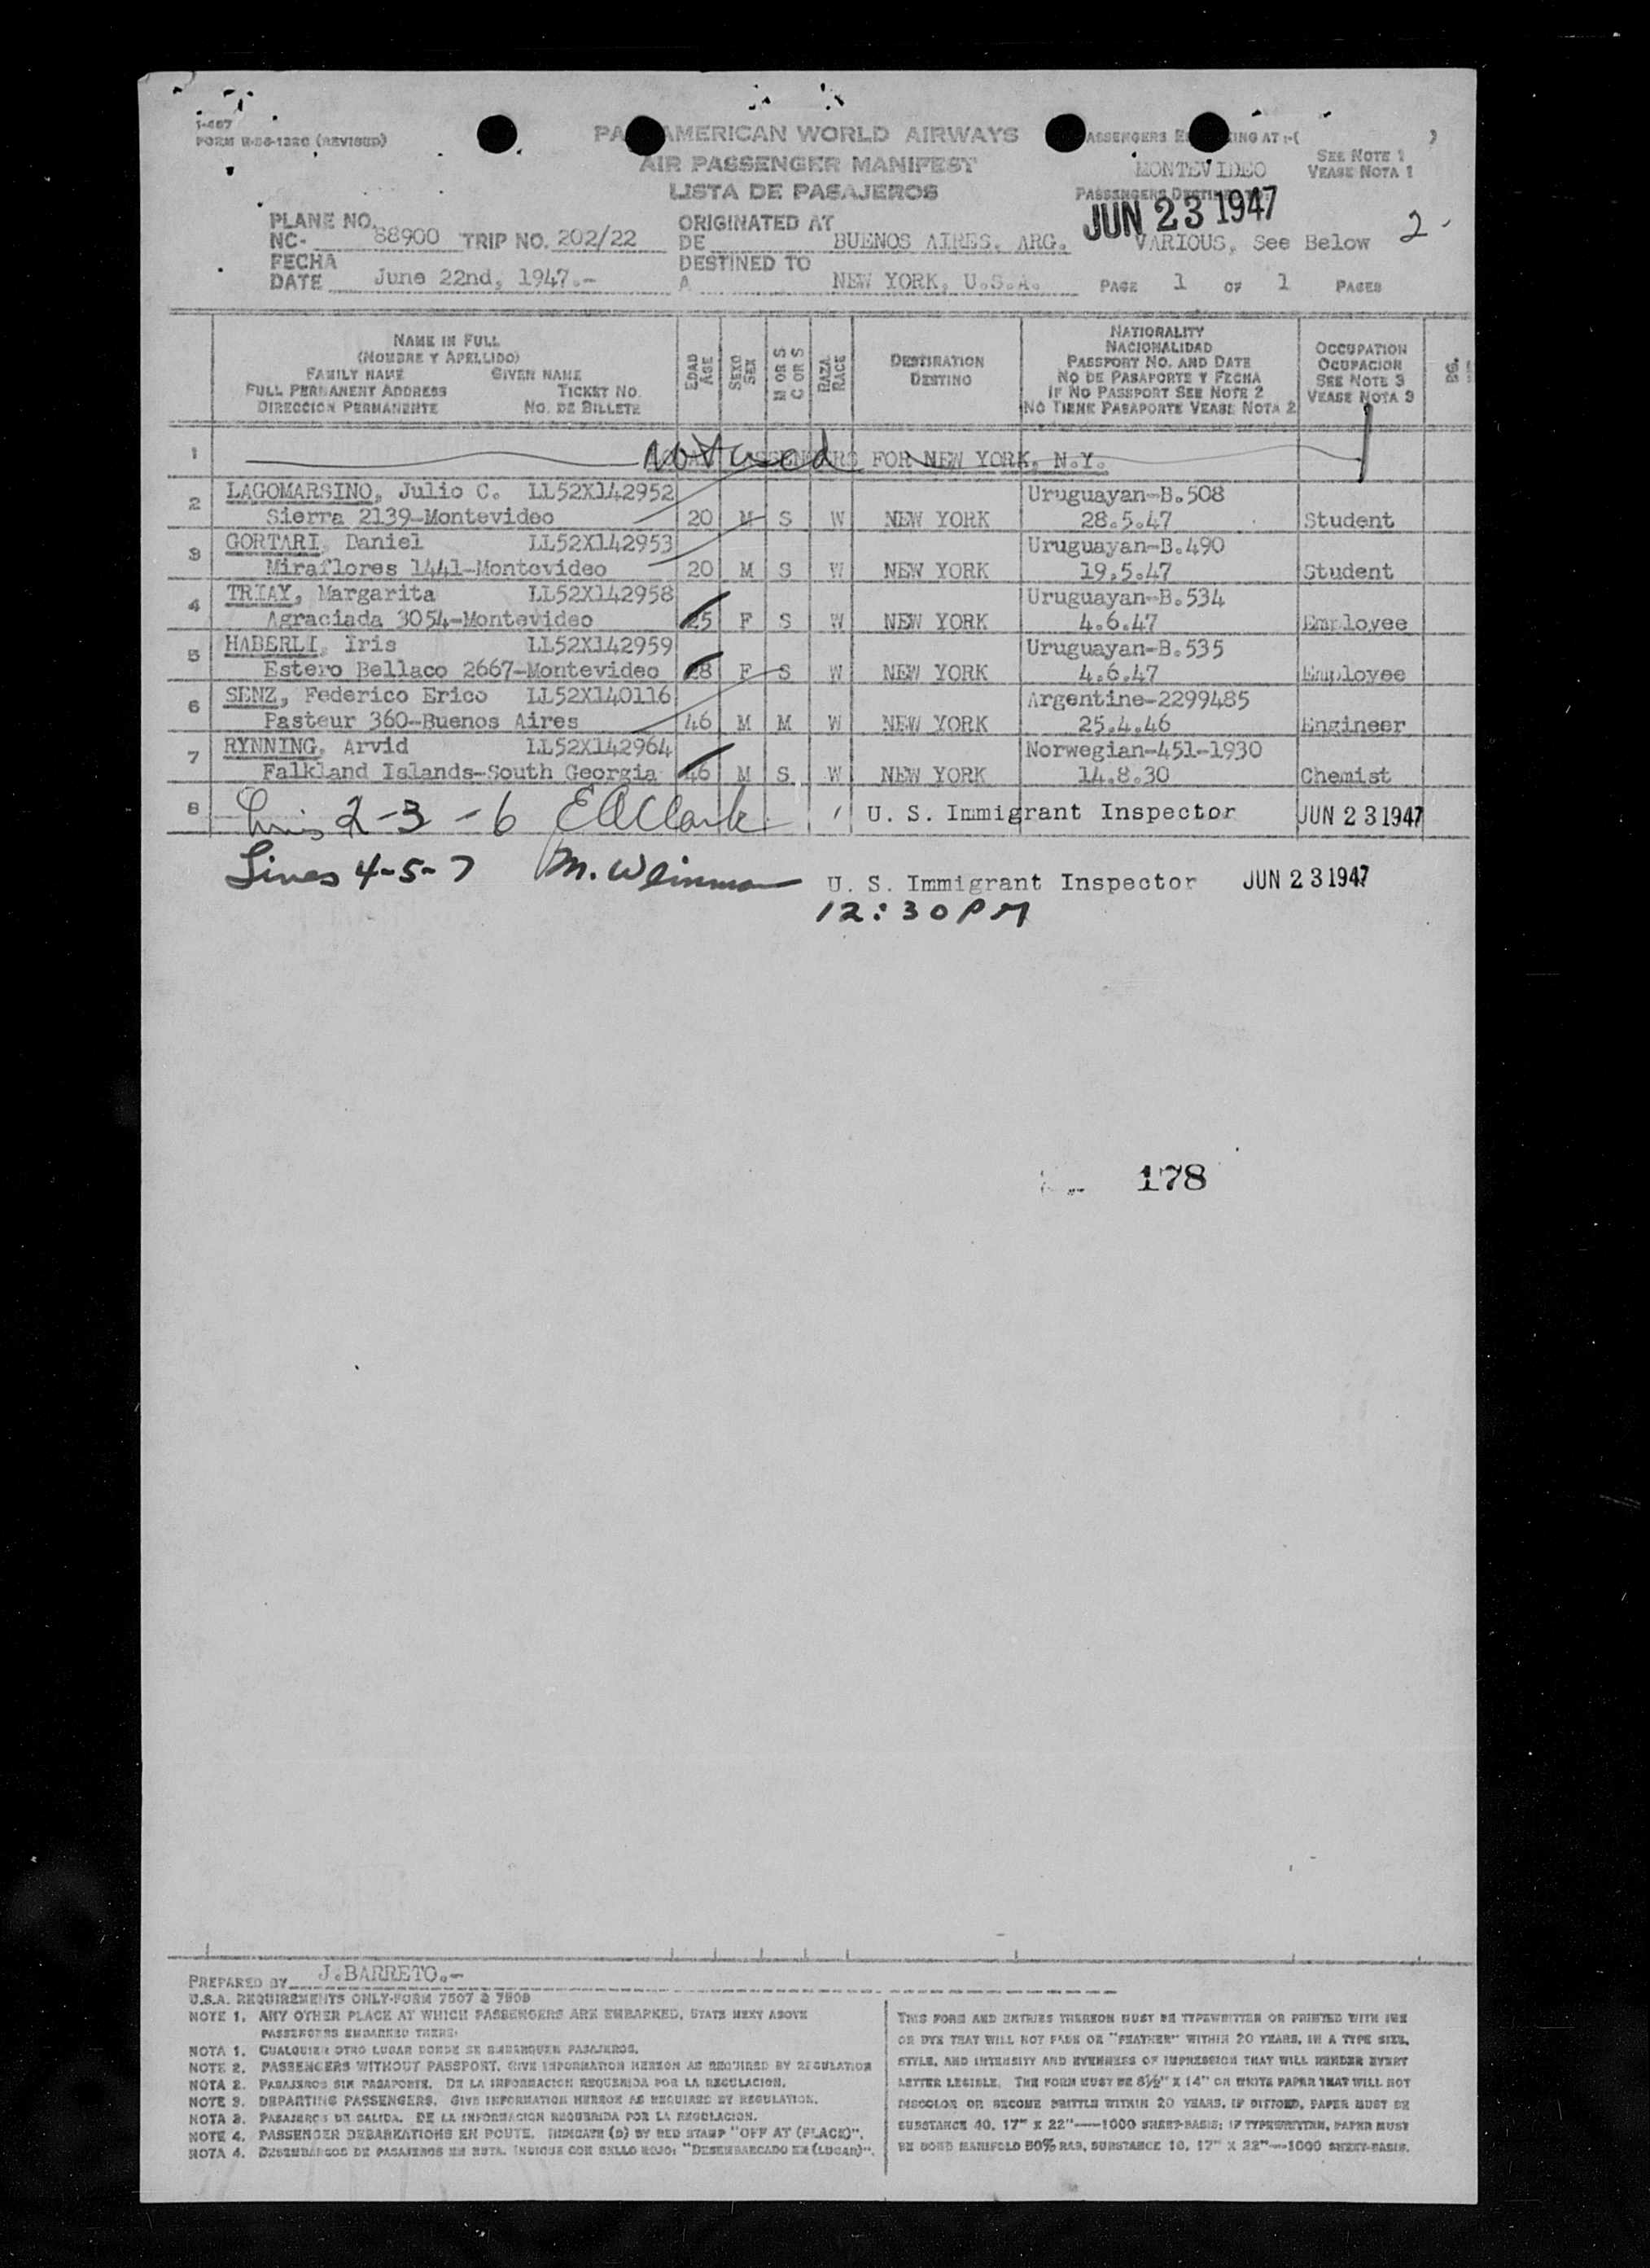 1-467
FORM R-86-132C (REVISED)
PAN AMERICAN WORLD AIRWAYS
AIR PASSENGER MANIFEST
LISTA DE PASAJEROS
PASSENGERS EMBARKING AT :-( )
MONTEVIDEO
SEE NOTE 1
VEASE NOTA 1
JUN 23 1947
VARIOUS, See Below
2-
PLANE NO.
NC- 88900 TRIP NO. 202/22
FECHA
DATE June 22nd, 1947.-
ORIGINATED AT
DE BUENOS AIRES, ARG.
DESTINED TO
A NEW YORK, U.S.A.
PAGE 1 OF 1 PAGES
NAME IN FULL
(NOMBRE Y APELLIDO)
FAMILY NAME GIVEN NAME
FULL PERMANENT ADDRESS TICKET NO.
DIRECCION PERMANENTE NO. DE BILLETE
EDAD
AGE
SEXO
SEX
M OR S
C OR S
RAZA
RACE
DESTINATION
DESTINO
NATIONALITY
NACIONALIDAD
PASSPORT NO. AND DATE
NO DE PASAPORTE Y FECHA
IF NO PASSPORT SEE NOTE 2
NO TIENE PASAPORTE VEASE NOTA 2
OCCUPATION
OCUPACION
SEE NOTE 3
VEASE NOTA 3
1 Not used PASSENGERS FOR NEW YORK, N.Y.
2 LAGOMARSINO, Julio C. LL52X142952 Uruguayan-B.508
Sierra 2139-Montevideo 20 M S W NEW YORK 28.5.47 Student
3 GORTARI, Daniel LL52X142953 Uruguayan-B.490
Miraflores 1441-Montevideo 20 M S W NEW YORK 19.5.47 Student
4 TRIAY, Margarita LL52X142958 Uruguayan-B.534
Agraciada 3054-Montevideo 25 F S W NEW YORK 4.6.47 Employee
5 HABERLI, Iris LL52X142959 Uruguayan-B.535
Estero Bellaco 2667-Montevideo 28 F S W NEW YORK 4.6.47 Employee
6 SENZ, Federico Erico LL52X140116 Argentine-2299485
Pasteur 360-Buenos Aires 46 M M W NEW YORK 25.4.46 Engineer
7 RYNNING, Arvid LL52X142964 Norwegian-451-1930
Falkland Islands-South Georgia 46 M S W NEW YORK 14.8.30 Chemist
8 2-3-6 E A Clark U. S. Immigrant Inspector JUN 23 1947
Lines 4-5-7 M. Weinman U. S. Immigrant Inspector JUN 23 1947
12:30 PM
178
PREPARED BY J.BARRETO.-
U.S.A. REQUIREMENTS ONLY-FORM 7507 & 7509
NOTE 1. ANY OTHER PLACE AT WHICH PASSENGERS ARE EMBARKED, STATE NEXT ABOVE
PASSENGERS EMBARKED THERE:
NOTA 1. CUALQUIER OTRO LUGAR DONDE SE EMBARQUEN PASAJEROS.
NOTE 2. PASSENGERS WITHOUT PASSPORT. GIVE INFORMATION HEREON AS REQUIRED BY REGULATION
NOTA 2. PASAJEROS SIN PASAPORTE. DE LA INFORMACION REQUERIDA POR LA REGULACION.
NOTE 3. DEPARTING PASSENGERS. GIVE INFORMATION HEREON AS REQUIRED BY REGULATION.
NOTA 3. PASAJEROS DE SALIDA. DE LA INFORMACION REQUERIDA POR LA REGULACION.
NOTE 4. PASSENGER DEBARKATIONS EN ROUTE. INDICATE (D) BY RED STAMP "OFF AT (PLACE)".
NOTA 4. DESEMBARCOS DE PASAJEROS EN RUTA. INDIQUE CON SELLO ROJO: "DESEMBARCADO EN (LUGAR)".
THIS FORM AND ENTRIES THEREON MUST BE TYPEWRITTEN OR PRINTED WITH INK
OR DYE THAT WILL NOT FADE OR "FEATHER" WITHIN 20 YEARS, IN A TYPE SIZE,
STYLE, AND INTENSITY AND EVENNESS OF IMPRESSION THAT WILL RENDER EVERY
LETTER LEGIBLE. THE FORM MUST BE 8½" X 14" ON WHITE PAPER THAT WILL NOT
DISCOLOR OR BECOME BRITTLE WITHIN 20 YEARS. IF DITTOED, PAPER MUST BE
SUBSTANCE 40, 17" X 22"—1000 SHEET-BASIS; IF TYPEWRITTEN, PAPER MUST
BE BOND MANIFOLD 50% RAG, SUBSTANCE 16, 17" X 22"—1000 SHEET-BASIS.